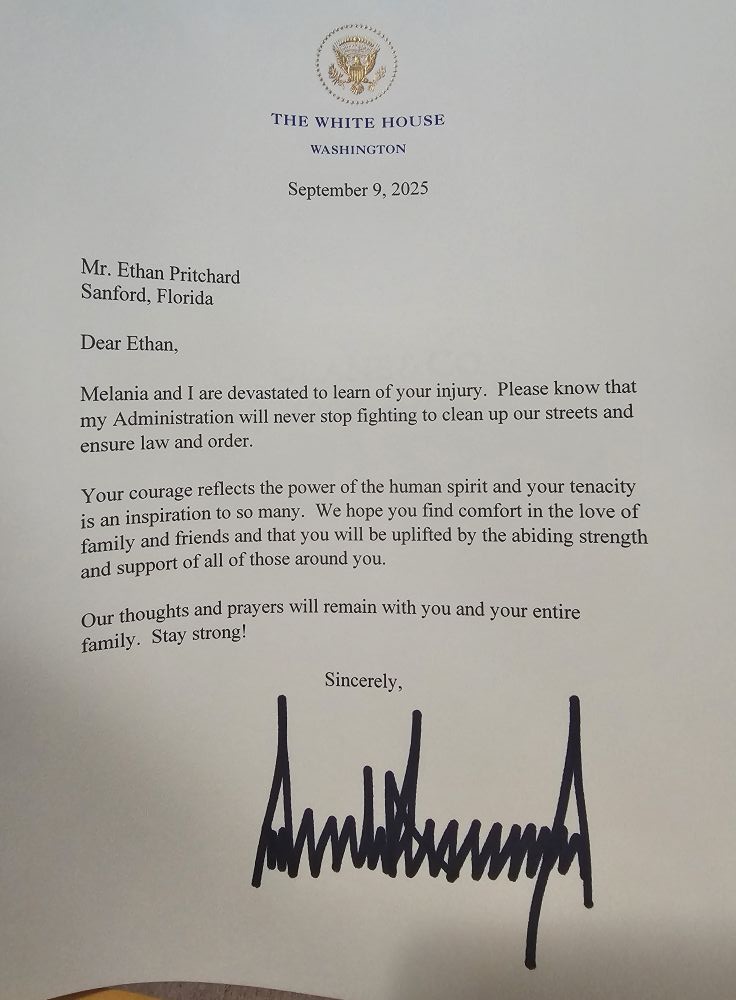 THE WHITE HOUSE
WASHINGTON
September 9, 2025
Mr. Ethan Pritchard
Sanford, Florida
Dear Ethan,
Melania and I are devastated to learn of your injury.  Please know that
my Administration will never stop fighting to clean up our streets and
ensure law and order.
Your courage reflects the power of the human spirit and your tenacity
is an inspiration to so many.  We hope you find comfort in the love of
family and friends and that you will be uplifted by the abiding strength
and support of all of those around you.
Our thoughts and prayers will remain with you and your entire
family.  Stay strong!
Sincerely,